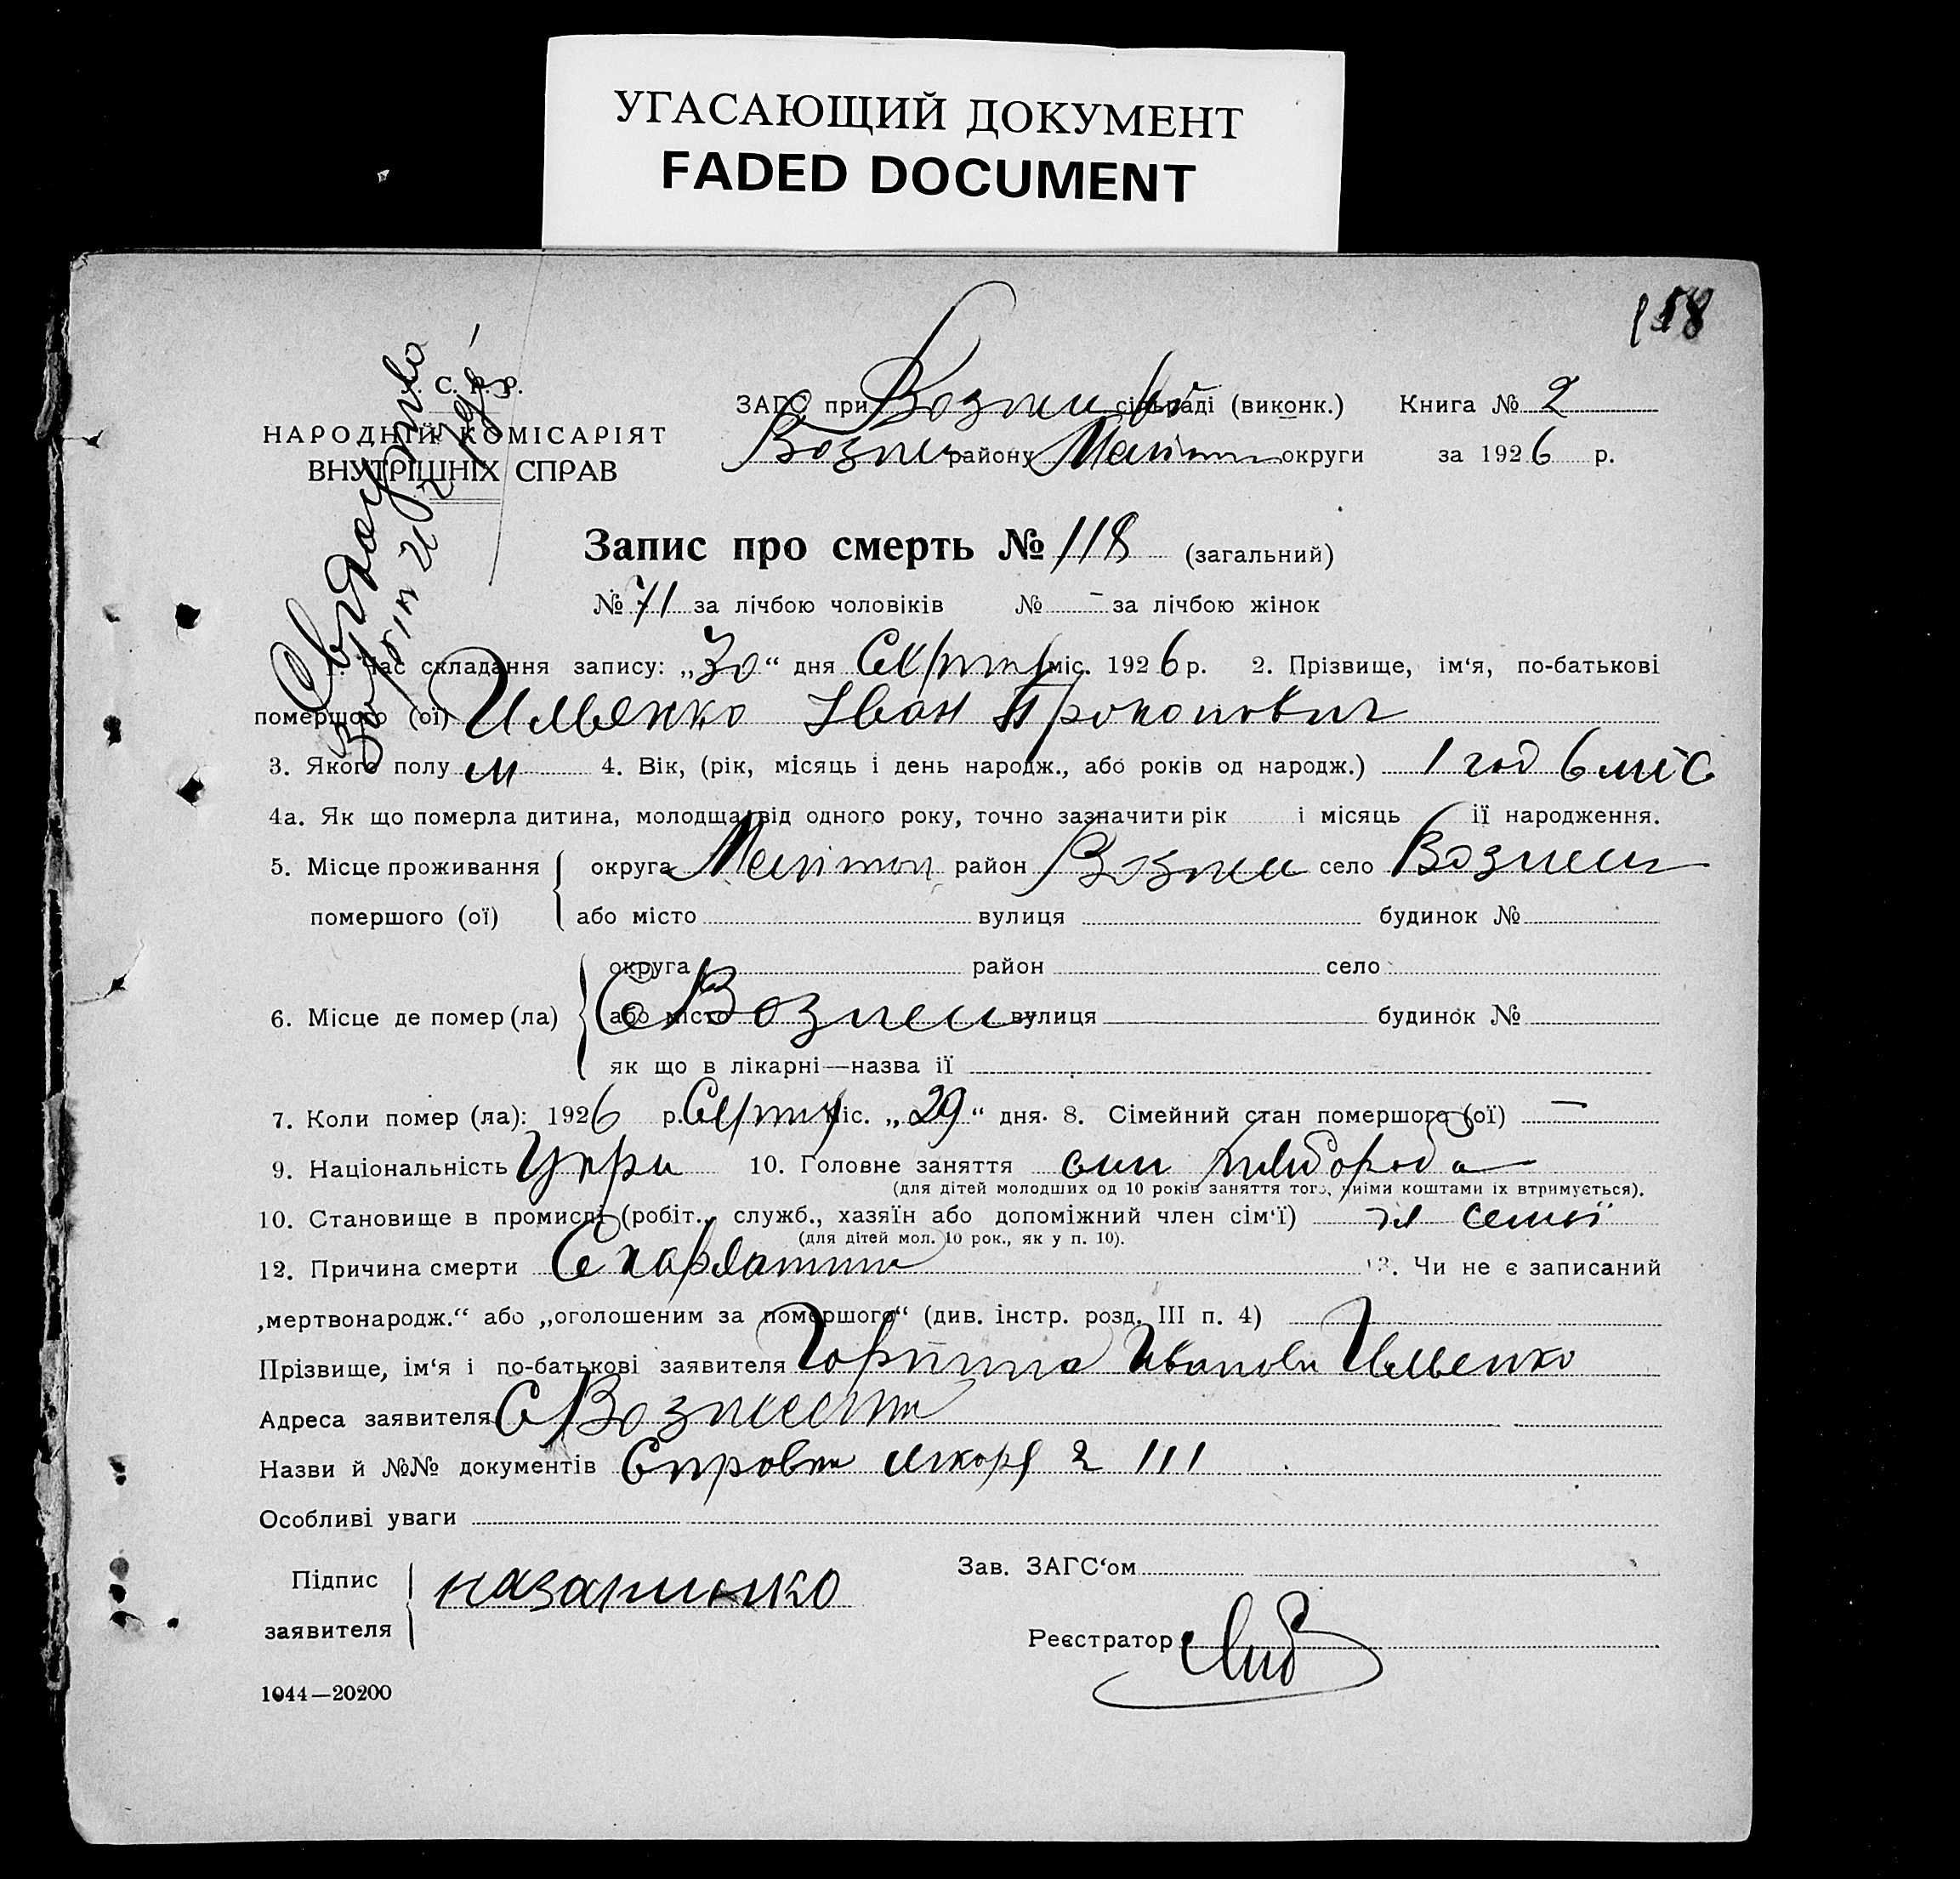 УГАСАЮЩИЙ ДОКУМЕНТ
FADED DOCUMENT
158
С. Р. Р.
НАРОДНІЙ КОМІСАРІЯТ
ВНУТРІШНІХ СПРАВ
ЗАГС при Вознес сільраді (виконк.) Книга № 2
Вознес району Меліт округи за 1926 р.
Запис про смерть № 118 (загальний)
№ 71 за лічбою чоловіків № - за лічбою жінок
1. Час складання запису: „30“ дня Серпня міс. 1926 р. 2. Прізвище, ім‘я, по-батькові
помершого (ої) Ильенко Іван Прокопович
3. Якого полу м 4. Вік, (рік, місяць і день народж., або років од народж.) 1 год 6 міс
4а. Як що померла дитина, молодща від одного року, точно зазначити рік і місяць ії народження.
5. Місце проживання округа Мелітоп район Вознес село Вознесен
помершого (ої) або місто вулиця будинок №
округа район село
6. Місце де помер (ла) або місто С Вознесен вулиця будинок №
як що в лікарні—назва ії
7. Коли помер (ла): 1926 р. Серпня міс. „29“ дня. 8. Сімейний стан помершого (ої) —
9. Національність Укр 10. Головне заняття син хлібороба
(для дітей молодших од 10 років заняття того, чиїми коштами їх втримується).
10. Становище в промислі (робіт., служб., хазяїн або допоміжний член сім‘ї) чл семьї
(для дітей мол. 10 рок., як у п. 10).
12. Причина смерти Скарлатина 13. Чи не є записаний
„мертвонародж.“ або „оголошеним за помершого“ (див. інстр. розд. III п. 4)
Прізвище, ім‘я і по-батькові заявителя Горпина Иванови Ильенко
Адреса заявителя С Вознесен
Назви й №№ документів Справка лікаря 2 111
Особливі уваги
Підпис
заявителя
Зав. ЗАГС‘ом
Реєстратор
1044—20200